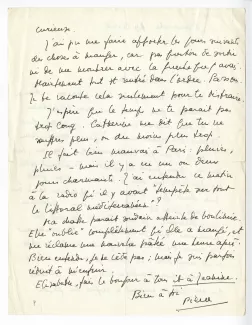 curieuse.
J'ai pu me faire apporter les jours suivants
des choses à manger, car pas question de sortir
ni de me montrer avec la
maintenant tout est rentré dans l'ordre.
Je te raconte cela seulement pour te distraire
J'espère que le temps ne te paraît pas
trop long. Catherine me dit que tu ne
souffres plus, ou du moins plus trop.
Il fait bien mauvais à Paris : pluies,
pluies - mais il y a eu un ou deux
jours charmants. J'ai entendu ce matin
à la radio qu'il y avait "tempête sur tout
le littoral méditerranéen"?
Ma chatte paraît atteinte de boulimie.
Elle "oublie" complètement qu'elle a mangé, et
me réclame une nouvelle pâtée une heure après.
Bien entendu, je ne cède pas ; mais je suis parfois
réduit à m'enfuir.
Elisabeth, fais le bonjour à Zou et à
Bien à toi
Pierre